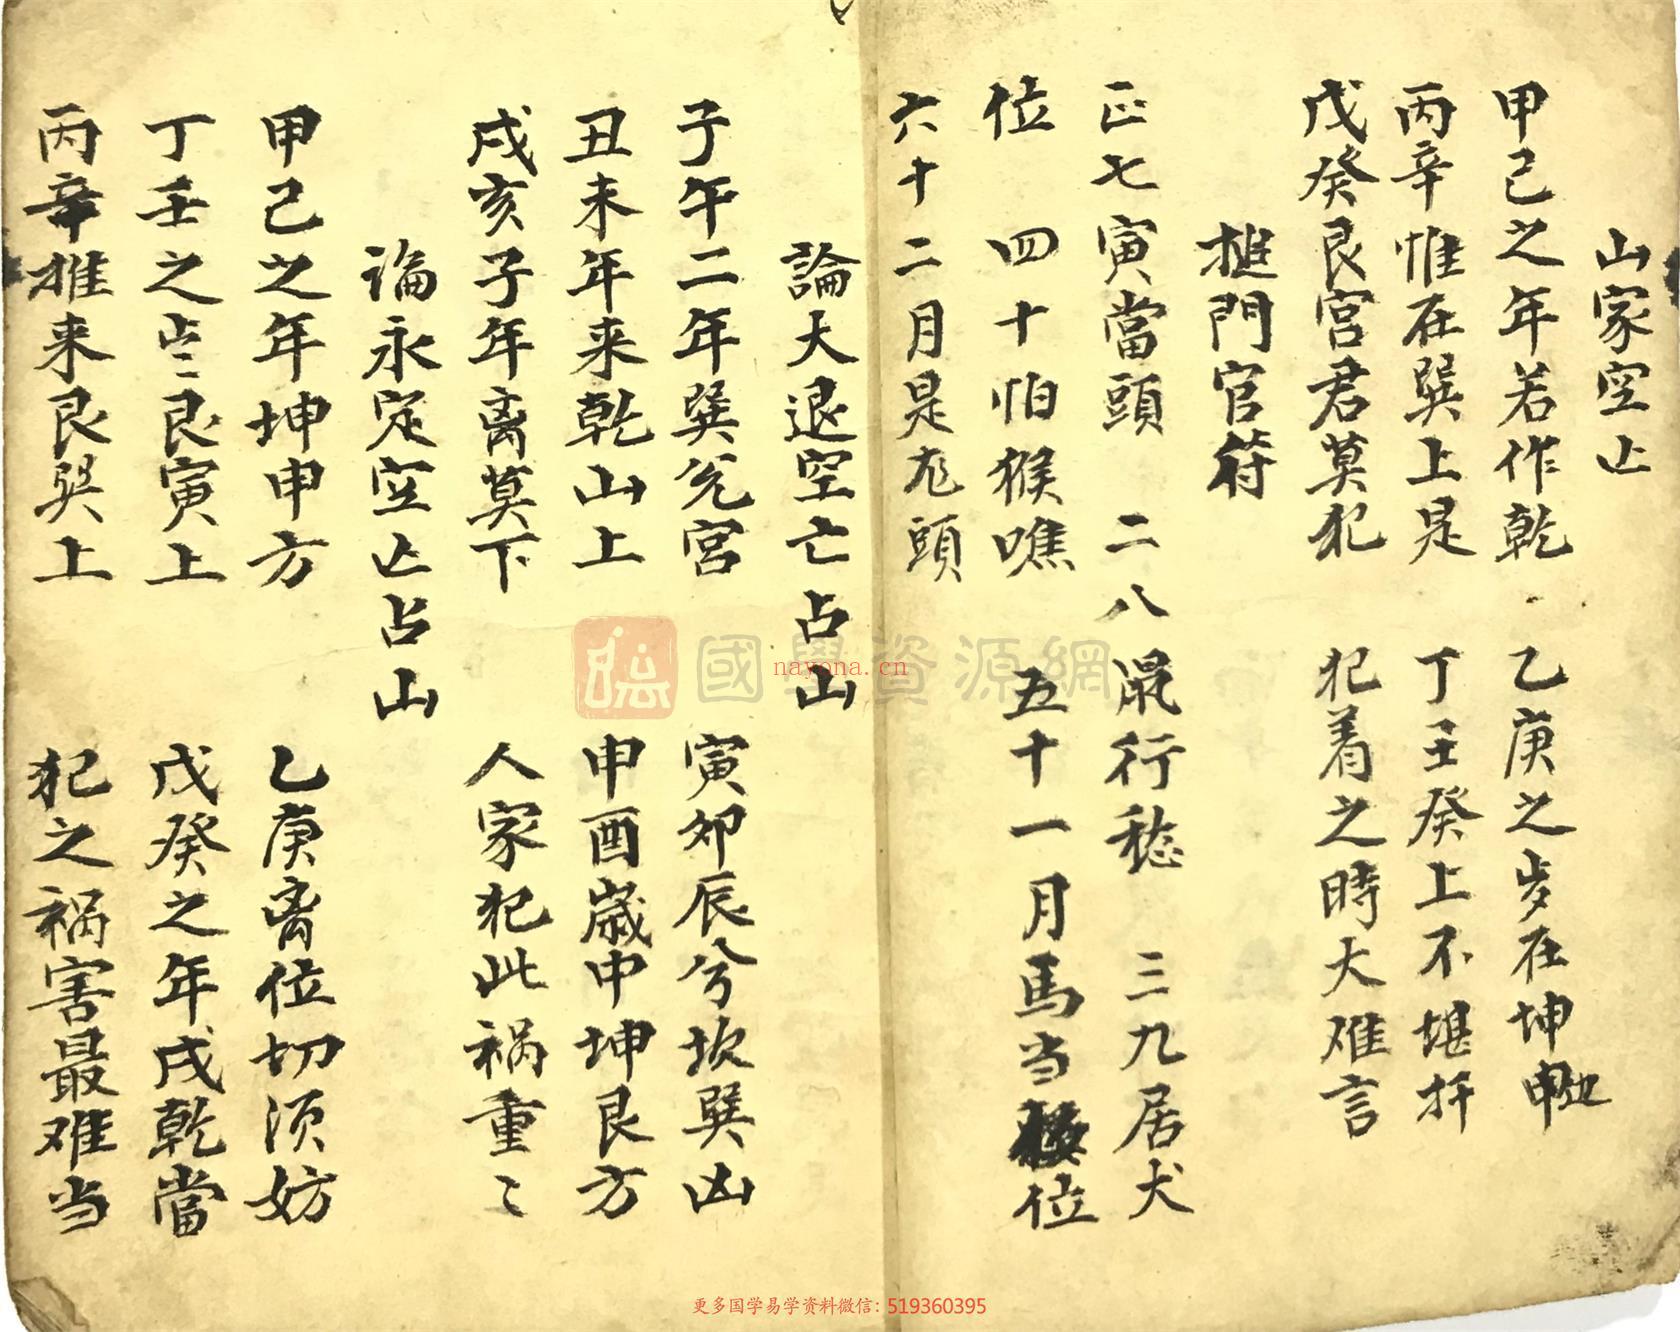 山家空亡
甲己之年若作乾 乙庚之岁在坤申
丙辛惟在巽上是 丁壬癸上不堪扦
戊癸艮宫君莫犯 犯着之時大难言
門官符
正七寅當頭 二八鼠行 三九居犬
位 四十怕猴噍 五十一月馬当位
六十二月是龙頭
論大退空亡占山
子午二年巽兑宫 寅卯辰兮坎巽凶
丑未年来乾山上 申酉歳中坤艮方
戌亥子年离莫下 人家犯此祸重〻
論永定空亡占山
甲己之年坤申方 乙庚离位切须妨
丁壬之岁艮寅上 戊癸之年戌乾當
丙辛推来艮巽上 犯之祸害最难当
國學資源網
nayona.cn
更多国学易学资料微信：519360395